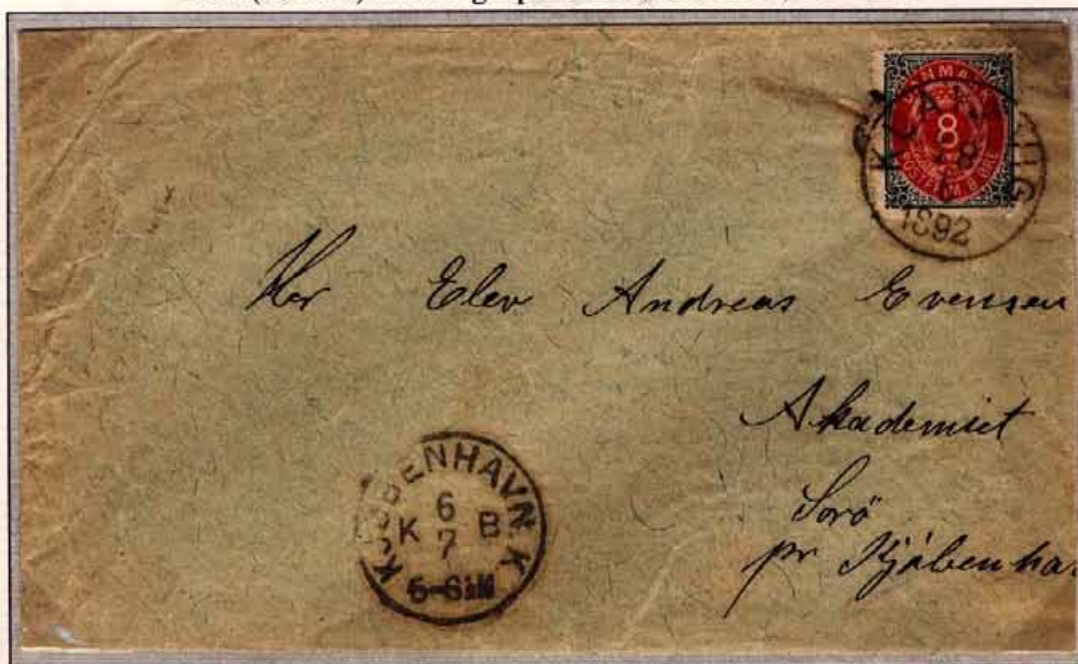 DANMARK
8
POSTFRM 8 ØRE
KLAKSVIG
28
6
1892
Hr Elev Andreas Evensen
Akademiet
Sorö
pr Kjöbenha
KJØBENHAVN K
K 6 B
7
5-6